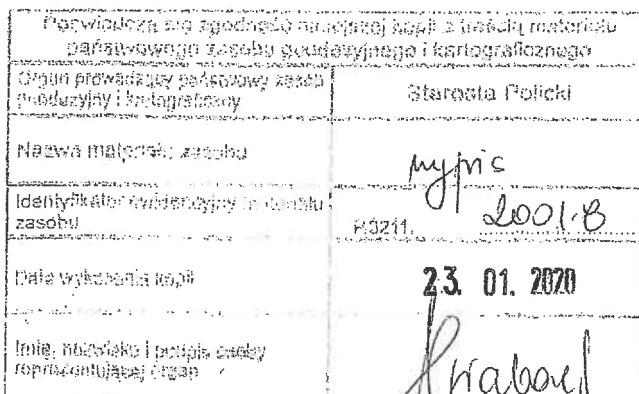 Poświadcza się zgodność niniejszej kopii z treścią materiału
państwowego zasobu geodezyjnego i kartograficznego
Organ prowadzący państwowy zasób
geodezyjny i kartograficzny
Starosta Policki
Nazwa materiału zasobu
wypis
Identyfikator ewidencyjny materiału
zasobu
P.3211. 2001.8
Data wykonania kopii
23. 01. 2020
Imię, nazwisko i podpis osoby
reprezentującej organ